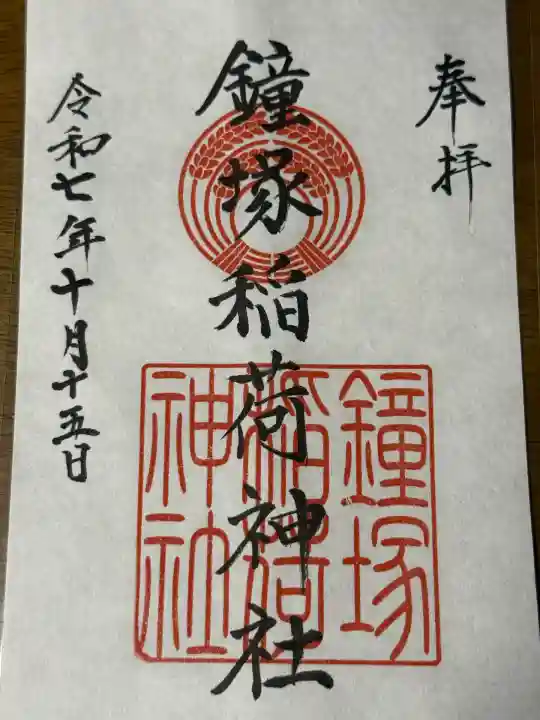 奉拝
鐘塚稲荷神社
鐘塚
稲荷
神社
令和七年十月十五日